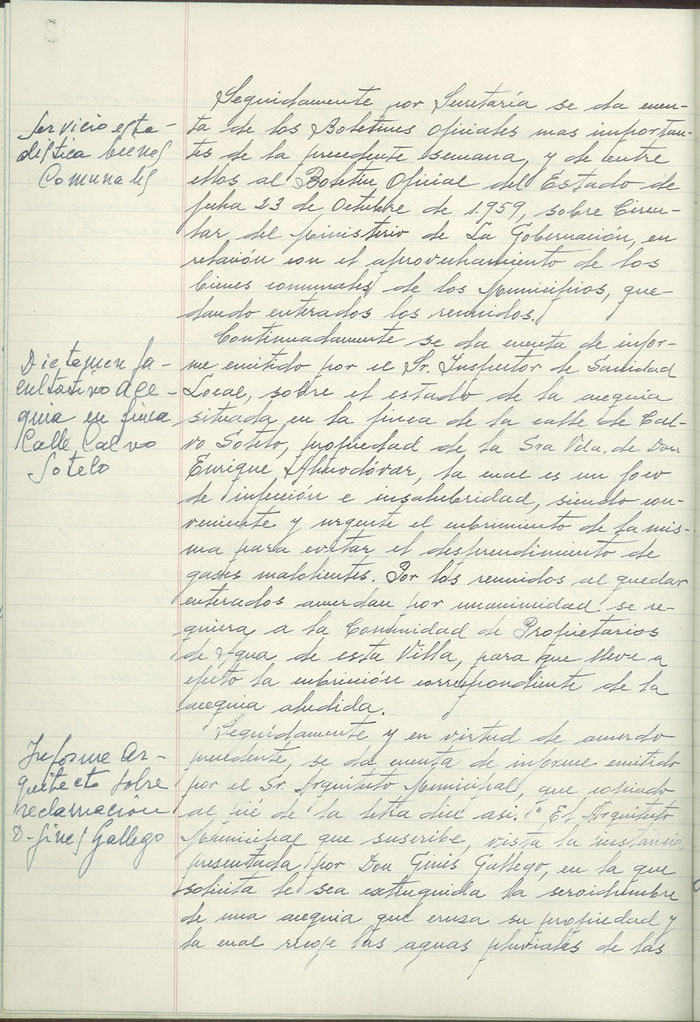 Servicio esta-
distica bienes
Comunales
Seguidamente por Secretaría se da cuen-
ta de los Boletines Oficiales mas importan-
tes de la precedente semana, y de entre
ellos al Boletin Oficial del Estado de
fecha 23 de Octubre de 1.959, sobre Circu-
lar del Ministerio de La Gobernación, en
relación con el aprovechamiento de los
bienes comunales de los Municipios, que-
dando enterados los reunidos.
Dictamen fa-
cultativo ace-
quia en finca
Calle Calvo
Sotelo
Continuadamente se da cuenta de infor-
me emitido por el Sr. Inspector de Sanidad
Local, sobre el estado de la acequia
situada en la finca de la calle de Cal-
vo Sotelo, propiedad de la Sra Vda. de Don
Enrique Almodóvar, la cual es un foco
de infección e insalubridad, siendo con-
veniente y urgente el cubrimiento de la mis-
ma para evitar el desprendimiento de
gases malolientes. Por los reunidos al quedar
enterados acuerdan por unanimidad se re-
quiera a la Comunidad de Propietarios
de Agua de esta Villa, para que lleve a
efecto la cubrición correspondiente de la
acequia aludida.
Informe Ar-
quitecto sobre
reclamación
D. Gines Gallego
Seguidamente y en virtud de acuerdo
precedente, se da cuenta de informe emitido
por el Sr. Arquitecto Municipal, que copiado
al pié de la letra dice asi: "El Arquitecto
Municipal que suscribe, vista la instancia
presentada por Don Ginés Gallego, en la que
solicita le sea extinguida la servidumbre
de una acequia que cruza su propiedad y
la cual recoje las aguas pluviales de las